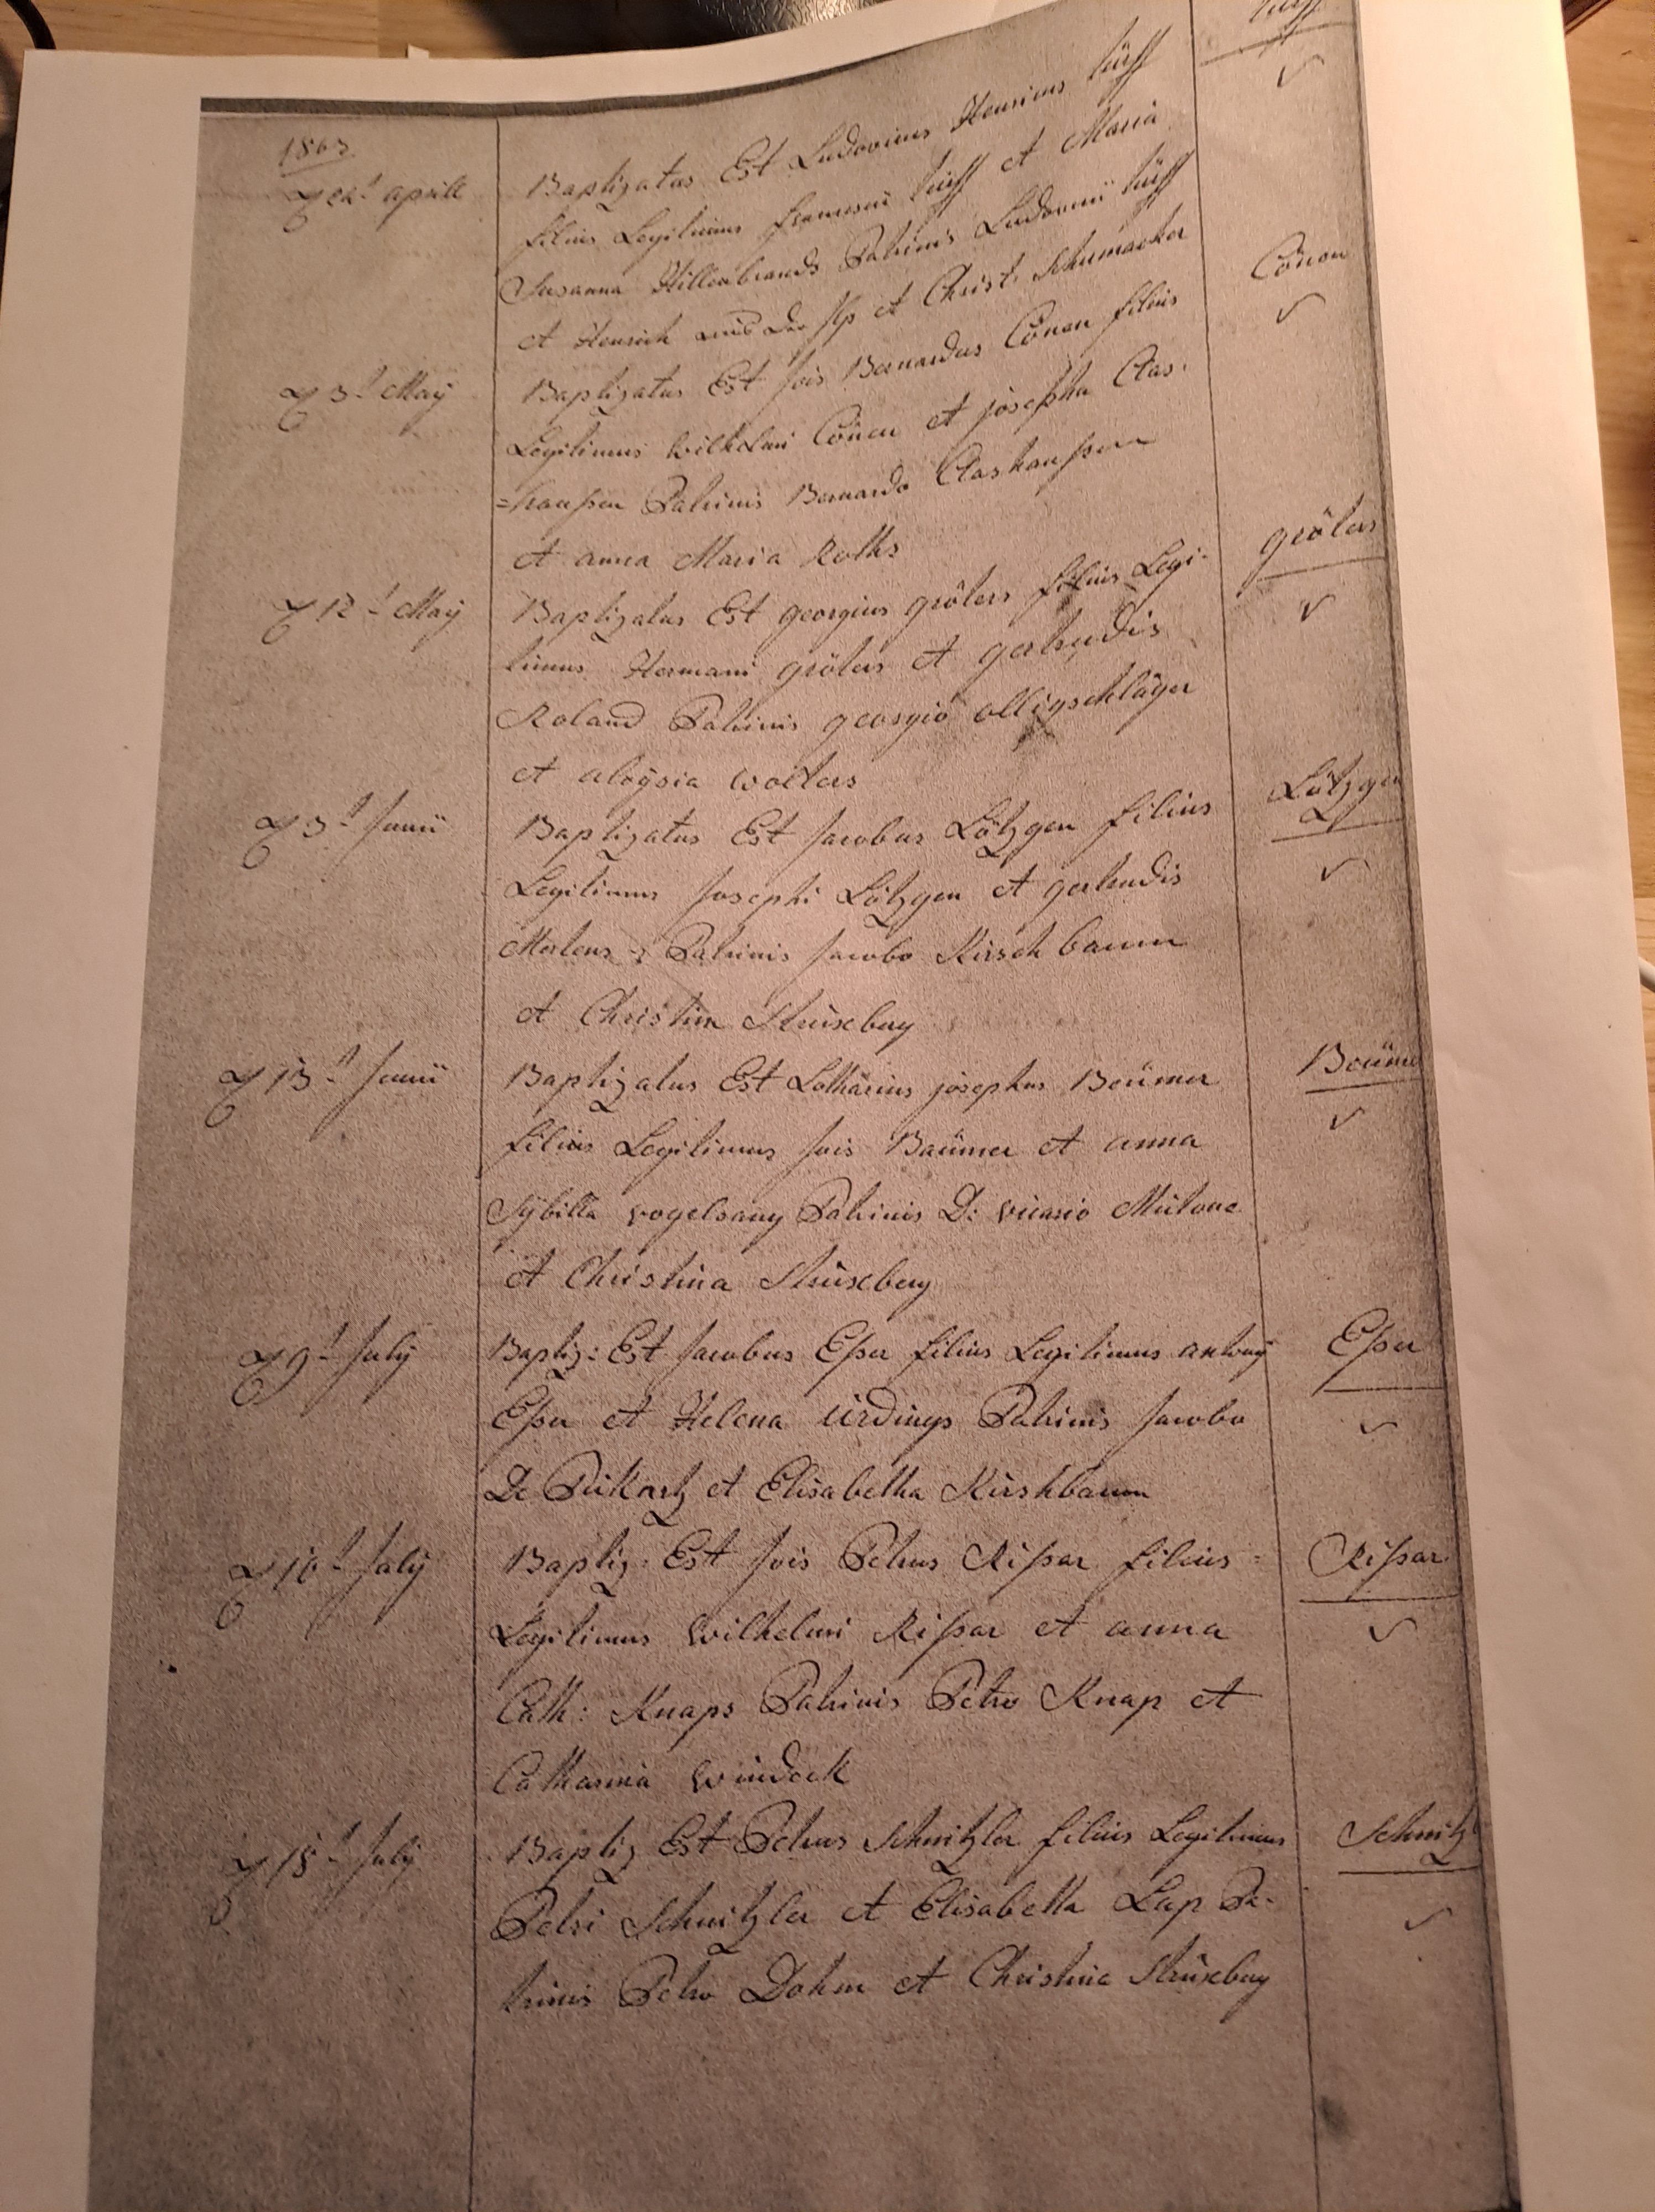 1803
aprill
Baptizatus Est Ludovicus Henricus lüff
lüff
filius Legitimus francisci lüff et Maria
Susanna Hillenbrands Patrinis Ludovici lüff
et Henrich aus der et Christ. Schumacher
3t May
Baptizatus Est Jois Bernardus Cönen filius
Cönen
Legitimus Wilhelmi Cönen et josepha Clas-
=haußen Patrinis Bernardo Clashaußen
et anna Maria Roths
12t May
Baptizatus Est georgius gröters filius Legi-
gröters
timus Hermani gröters et gertrudis
Roland Patrinis georgio olligschläger
et aloysia wolters
3t Junii
Baptizatus Est Jacobus Lötzgen filius
Lötzgen
Legitimus Josephi Lötzgen et gertrudis
Mertens Patrinis Jacobo Kirschbaum
et Christina Strüxberg
13t Junii
Baptizatus Est Lotharius josephus Beümer
Beüme
filius Legitimus Jois Baümer et anna
Sybilla vogelsang Patrinis D: vicario
et Christina Strüxberg
9t July
Baptiz: Est Jacobus Eßer filius Legitimus antony
Eßer
Eßer et Helena ürdings Patrinis Jacobo
De et Elisabetha Kirshbaum
July
Baptiz: Est Jois Petrus Rißar filius
Rißar
Legitimus Wilhelmi Rißar et anna
Cath: Knaps Patrinis Petro Knap et
Catharina Windeck
July
Baptiz Est Petrus Schnitzler filius Legitimus
Schnitzl
Petri Schnitzler et Elisabetha Lap Pa-
trinis Petro Dohm et Christina Strüxberg